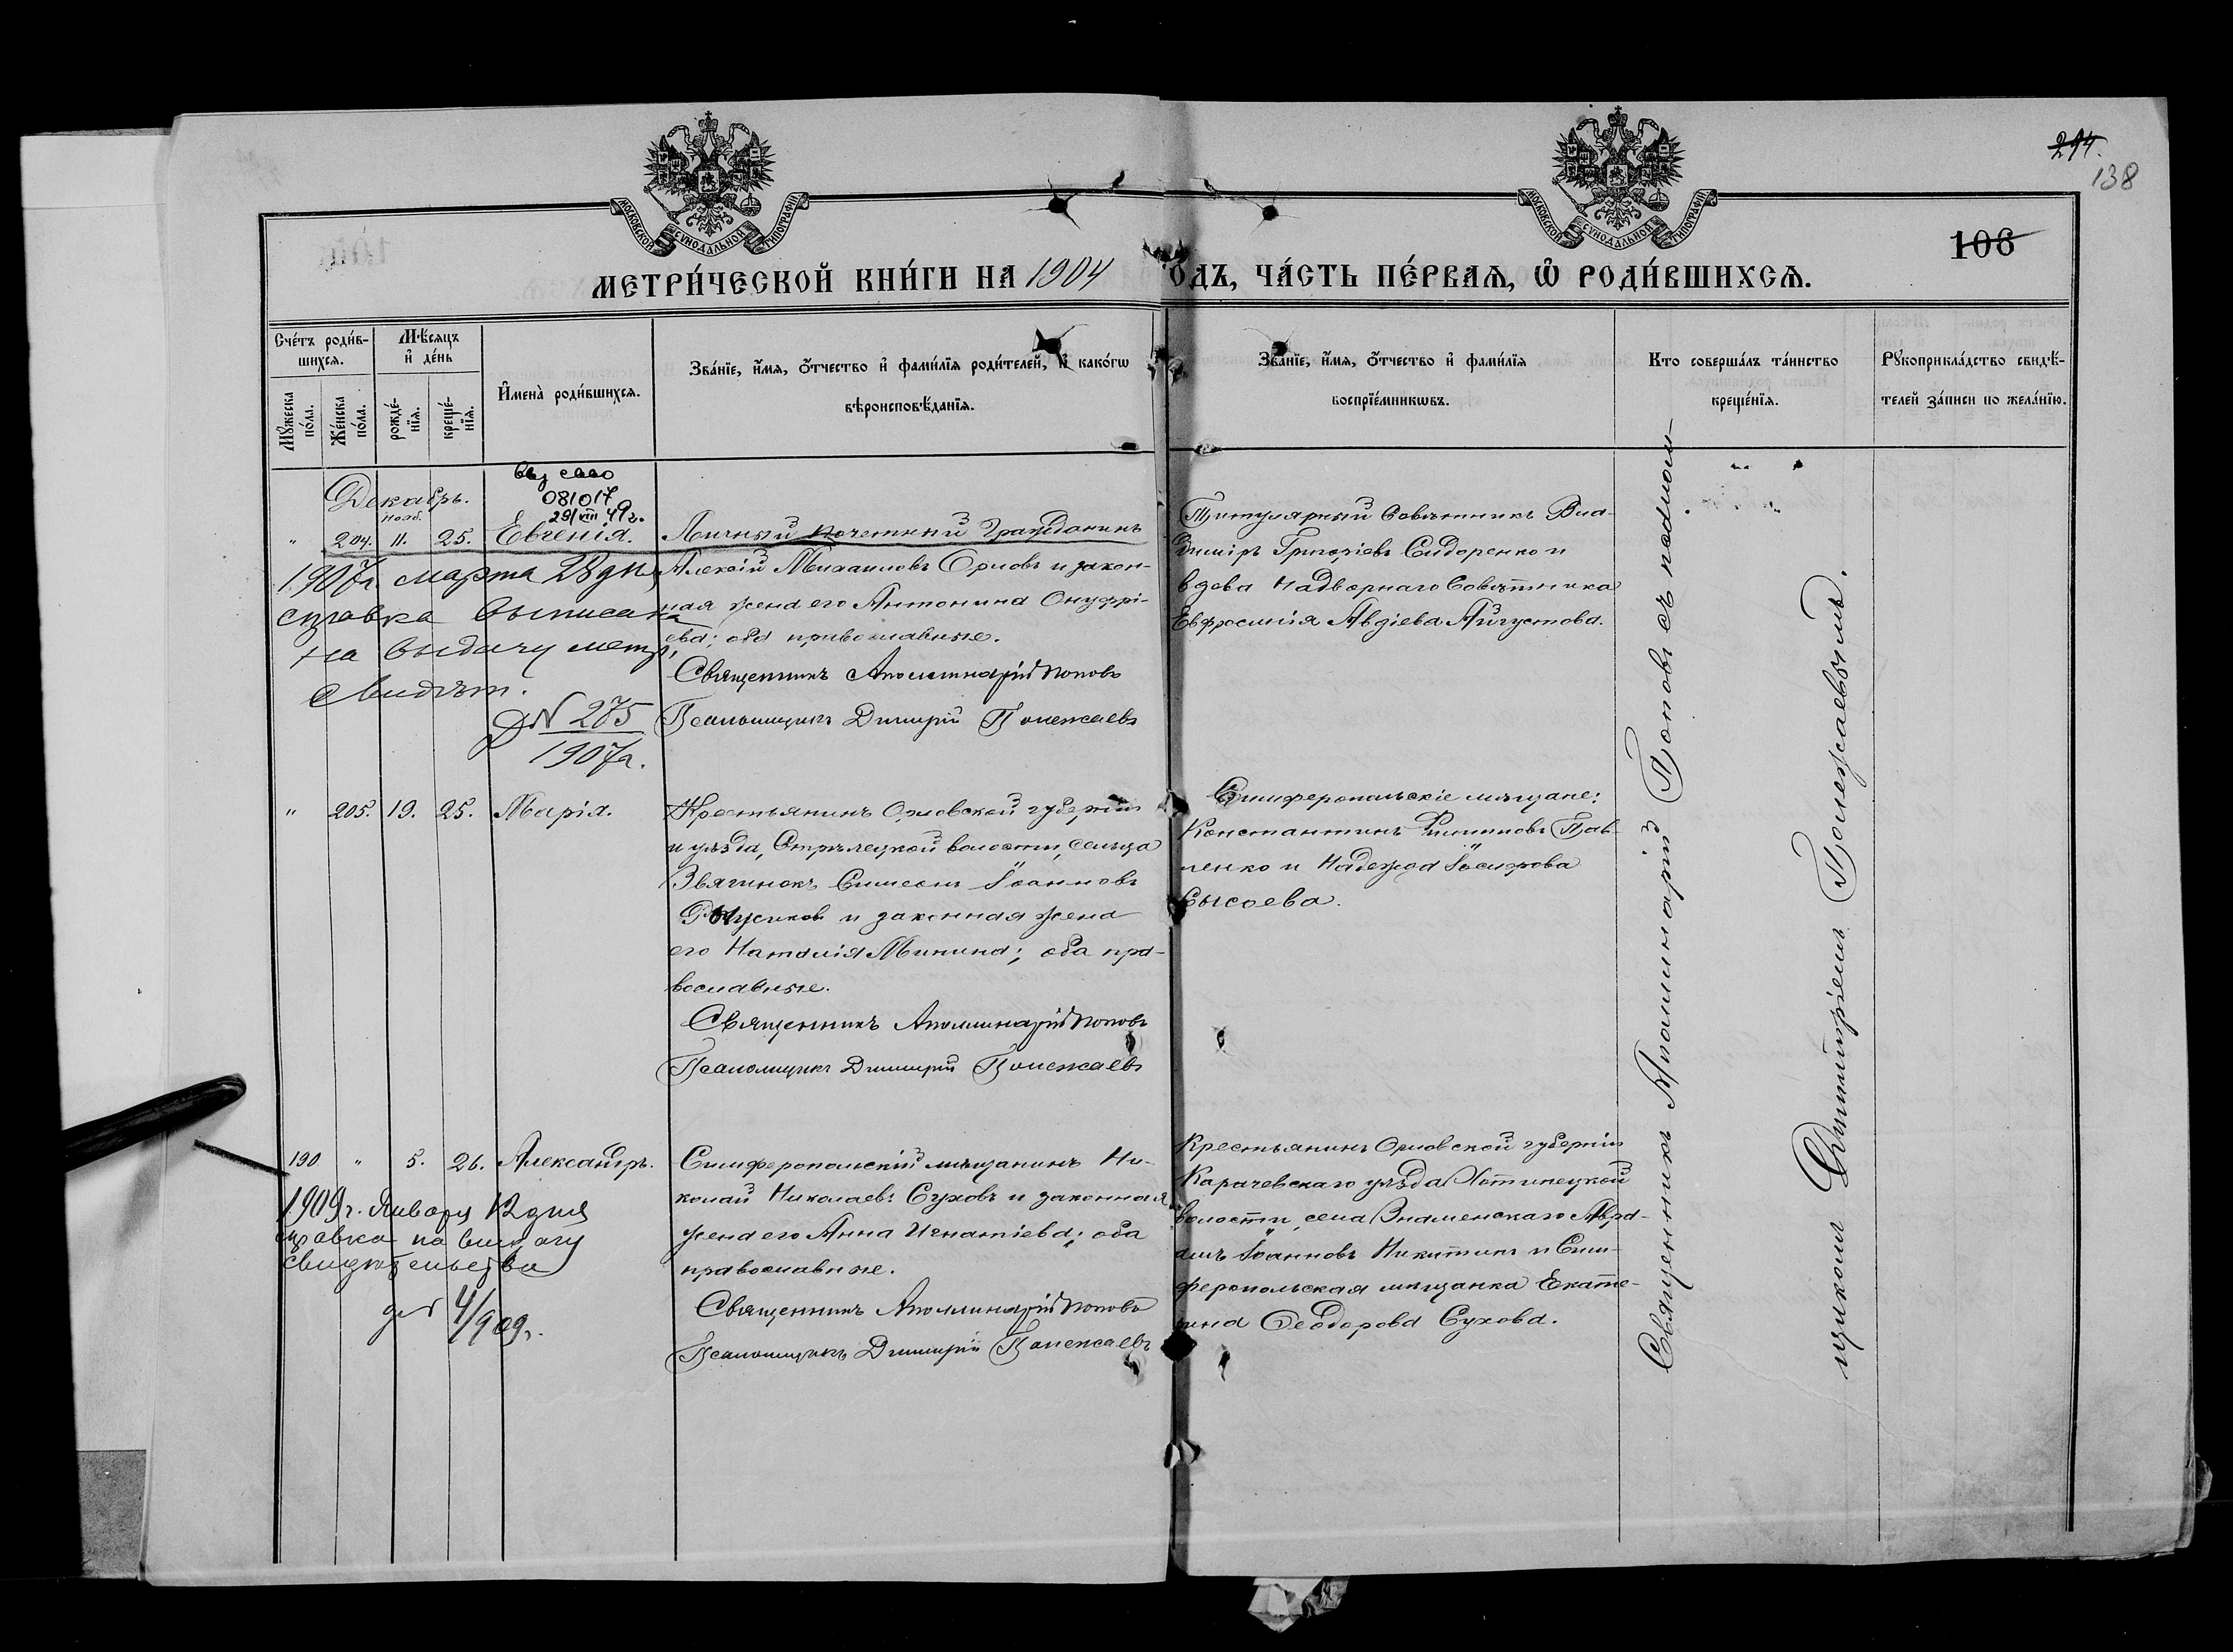 294.
138
106
МОСКОВСКОЙ СѴНОДАЛЬНОЙ ТИПОГРАФІИ
МОСКОВСКОЙ СѴНОДАЛЬНОЙ ТИПОГРАФІИ
МЕТРИ́ЧЕСКОЙ КНИ́ГИ НА 1904 ОДЪ, ЧА́СТЬ ПЕ́РВАѦ, Ѽ РОДИ́ВШИХСѦ.
Сче́тъ роди́в-
шихсѧ.
Мѣ́сѧцъ
и҆ де́нь
Мꙋ́жеска
по́ла.
Же́нска
по́ла.
рожде́-
нїѧ.
креще́-
нїѧ.
И҆мена̀ роди́вшихсѧ.
Зва́нїе, и҆́мѧ, о҆́тчество и҆ фами́лїѧ роди́телей, и҆ како́гѡ
вѣроисповѣ́данїѧ.
Зва́нїе, и҆́мѧ, о҆́тчество и҆ фами́лїѧ
воспрїе́мникѡвъ.
Кто соверша́лъ та́инство
креще́нїѧ.
Рꙋкоприкла́дство свидѣ́-
телей за́писи по жела́нїю.
Декабрь.
081017
29/VIII 49г.
Нояб.
" 204. 11. 25. Евгенія.
Личный почетный Гражданинъ
Алексій Михаиловъ Орловъ и закон-
ная жена его Антонина Онуфрі-
ева; оба православные.
Священникъ Аполлинарій Поповъ
Псаломщикъ Димитрій Полежаевъ
Титулярный Совѣтникъ Вла-
диміръ Григоріевъ Сидоренко и
вдова Надворнаго Совѣтника
Евфросинія Авдіева Августова.
1907г. марта 28 дня
справка выписана
на выдачу метр.
свидѣт.
Д№ 275
1907г.
" 205. 19. 25. Марія.
Крестьянинъ Орловской губерніи
и уѣзда, Стрѣлецкой волости, сельца
Звягинокъ Симеонъ Іоанновъ
и законная жена
его Наталія Минина; оба пра-
вославные.
Священникъ Аполлинарій Поповъ
Псаломщикъ Димитрій Полежаевъ
Симферопольскіе мѣщане:
Константинъ Филипповъ Пав-
ленко и Надежда Іосифова
Сысоева.
190 " 5. 26. Александръ.
Симферопольскій мѣщанинъ Ни-
колай Николаевъ Суховъ и законная
жена его Анна Игнатіева; оба
православные.
Священникъ Аполлинарій Поповъ
Псаломщикъ Димитрій Полежаевъ
Крестьянинъ Орловской губерніи
Карачевскаго уѣзда Хотинецкой
волости, села Знаменскаго Авра-
амъ Іоанновъ Никитинъ и Сим-
феропольская мѣщанка Екате-
рина Ѳеодорова Сухова.
1909г. Января 12 дня
справка на выдачу
свидѣтельства
д№ 4/909г.
Священникъ Аполлинарій Поповъ съ псалом-
щикомъ Димитріемъ Полежаевымъ.